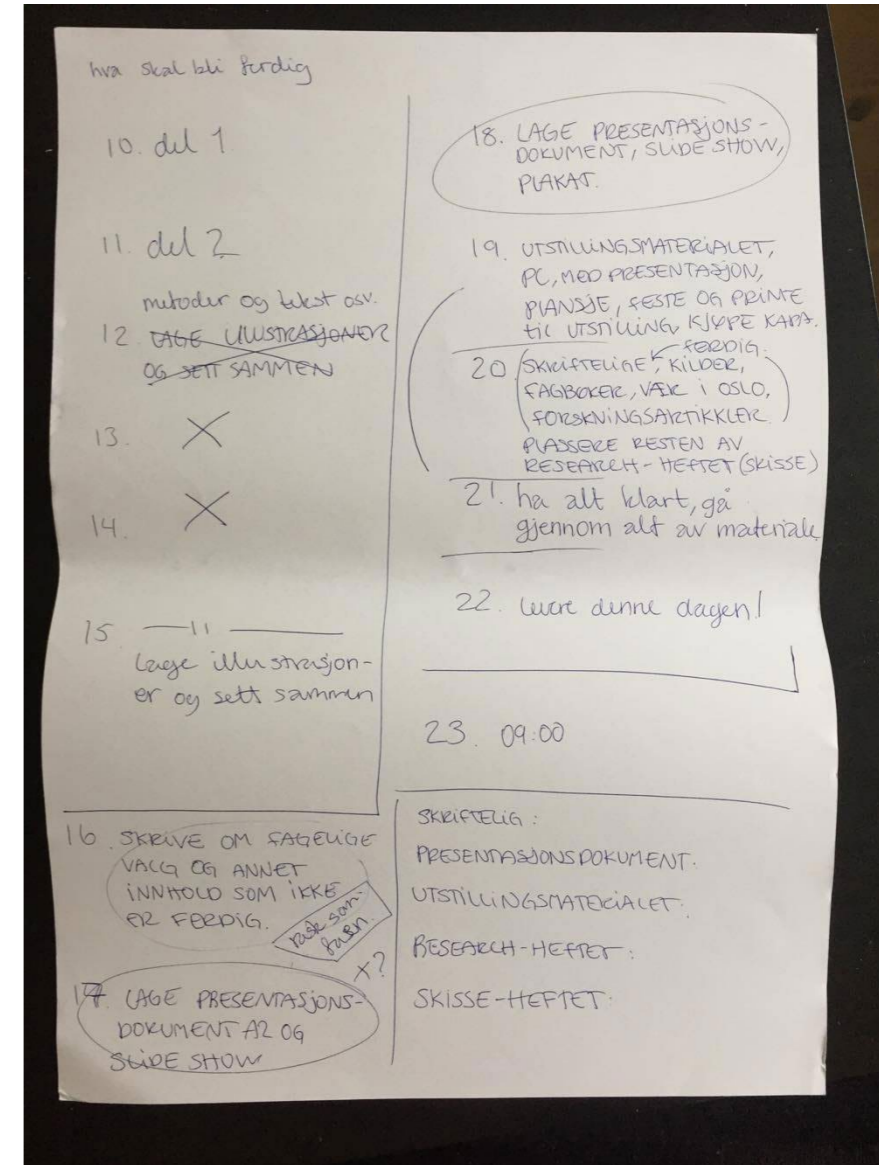 hva skal bli ferdig
10. del 1
11. del 2
metoder og tekst osv.
12 LAGE ILLUSTRASJONER
OG SETT SAMMEN
13. X
14. X
15 —11——
Lage illustrasjon-
er og sett sammen
16 SKRIVE OM FAGELIGE
VALG OG ANNET
INNHOLD SOM IKKE
ER FERDIG.
X?
17. LAGE PRESENTASJONS-
DOKUMENT A2 OG
SLIDE SHOW
18. LAGE PRESENTASJONS-
DOKUMENT, SLIDE SHOW,
PLAKAT.
19. UTSTILLINGSMATERIALET,
PC, MED PRESENTASJON,
PLANSJE, FESTE OG PRINTE
til UTSTILLING, KJØPE KAPA.
FERDIG.
20 SKRIFTELIGE, KILDER,
FAGBØKER, VÆR i OSLO,
FORSKNINGSARTIKKLER.
PLASSERE RESTEN AV
RESEARCH-HEFTET (SKISSE)
21. ha alt klart, gå
gjennom alt av materiale
22. levere denne dagen!
23. 09:00
SKRIFTELIG:
PRESENTASJONSDOKUMENT:
UTSTILLINGSMATERIALET:
RESEARCH-HEFTET:
SKISSE-HEFTET: